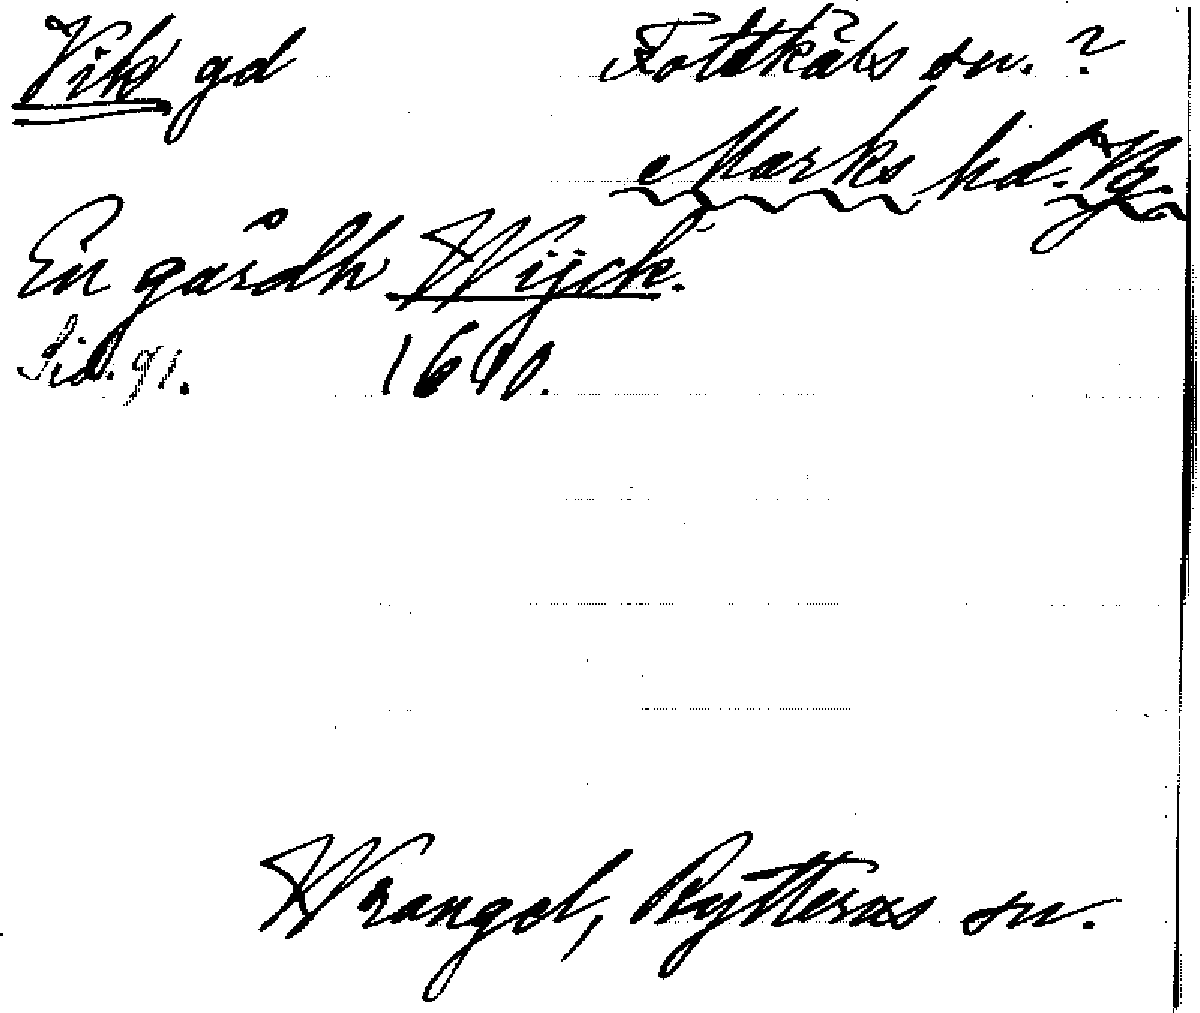 Vik gd Fotskäls sn. ?
Marks hd. Vg
En gårdh Wijck.
Sid. 91. 1640.
Wrangel, Rytterns sn.